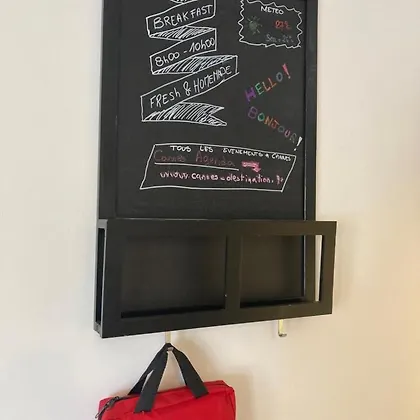 BREAKFAST
8h00 - 10h00
FRESH & HOMEMADE
METEO
HELLO!
BONJOUR!
TOUS LES EVENEMENTS A CANNES
Cannes Agenda
www.cannes-destination.fr